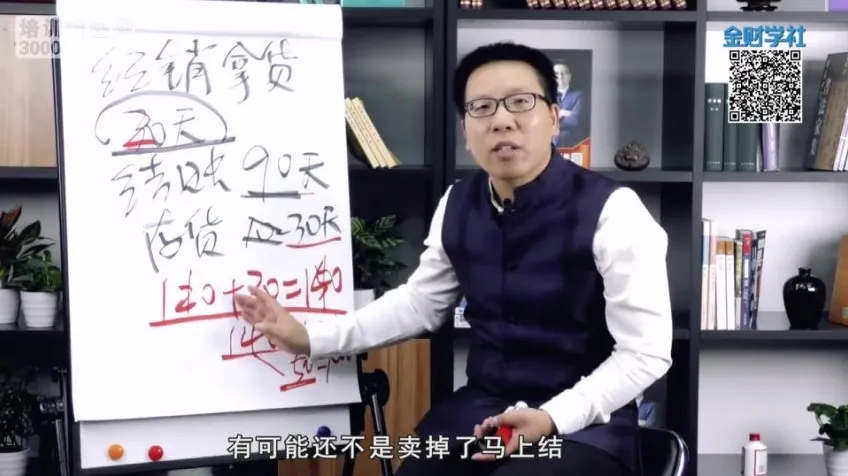 培训
3000
金财学社
经销拿货
30天
结账 90天
存货 30天
120+20=140
140
有可能还不是卖掉了马上结